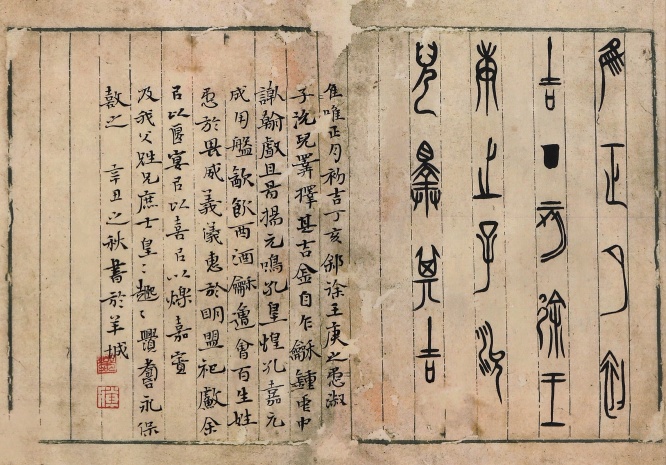 隹正月初
吉丁亥徐王
庚之子沇
兒擇其吉
隹唯正月初吉丁亥䣄徐王庚之惄淑
子沇兒睪擇其吉金自乍龢鍾中
翰戲且昜揚元鳴孔皇煌孔嘉元
成用盤歙飲酉酒龢會百生姓
惄於畏威義儀惠於明盟祀余
㠯以匽宴㠯以喜㠯以爍嘉賓
及我父兄庶士皇〻趣〻釁永保
鼓之 辛丑之秋書於羊城